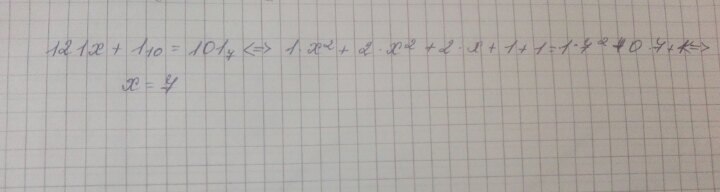 121x + 1₁₀ = 101₇ <=> 1·x² + 2·x² + 2·x + 1 + 1 = 1·7² + 0·7 + 1 <=>
x = 7